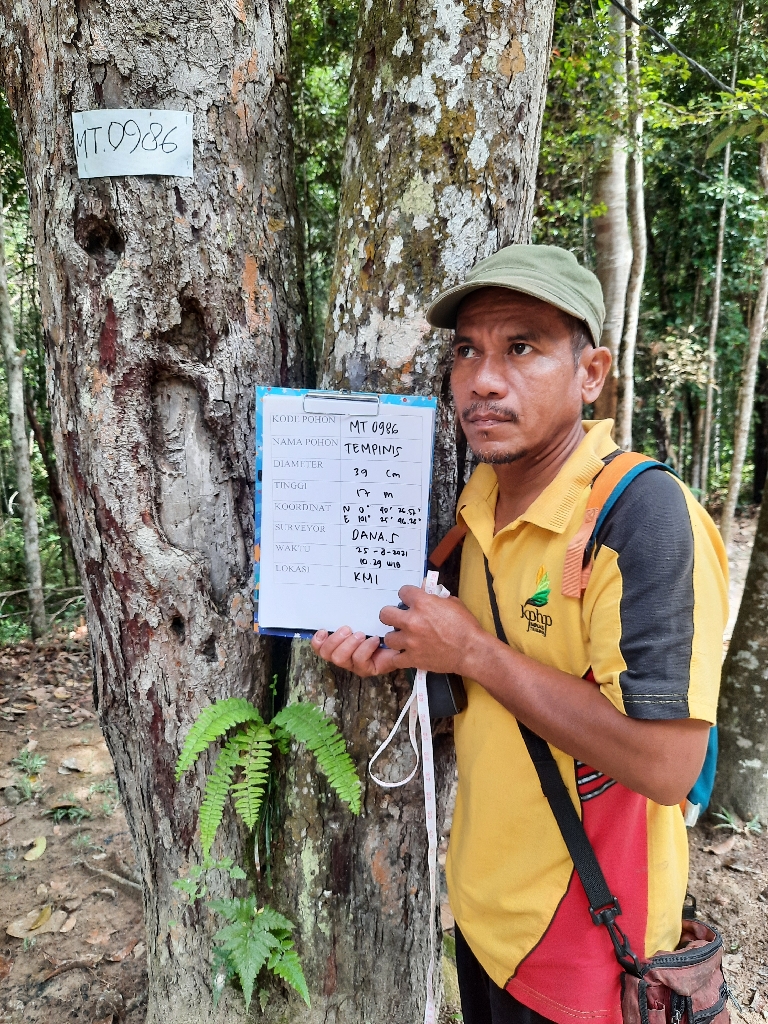 MT.0986
KODE POHON MT 0986
NAMA POHON TEMPINIS
DIAMETER 39 Cm
TINGGI 17 m
KOORDINAT N 0° 40' 26.57"
E 101° 25' 46.28"
SURVEYOR DANA.S
WAKTU 25-8-2021
10.29 WIB
LOKASI KMI
kphp